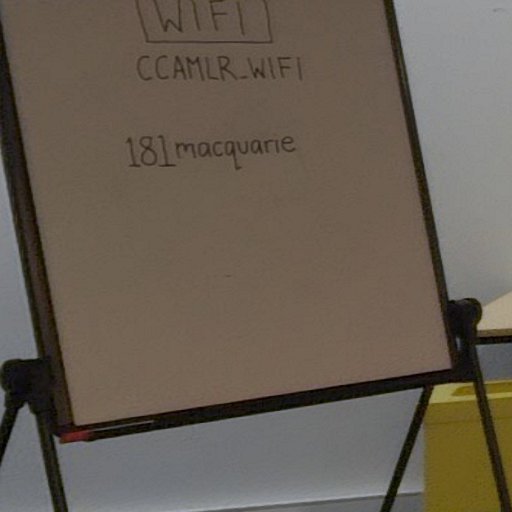 WIFI
CCAMLR_WIFI
181macquarie